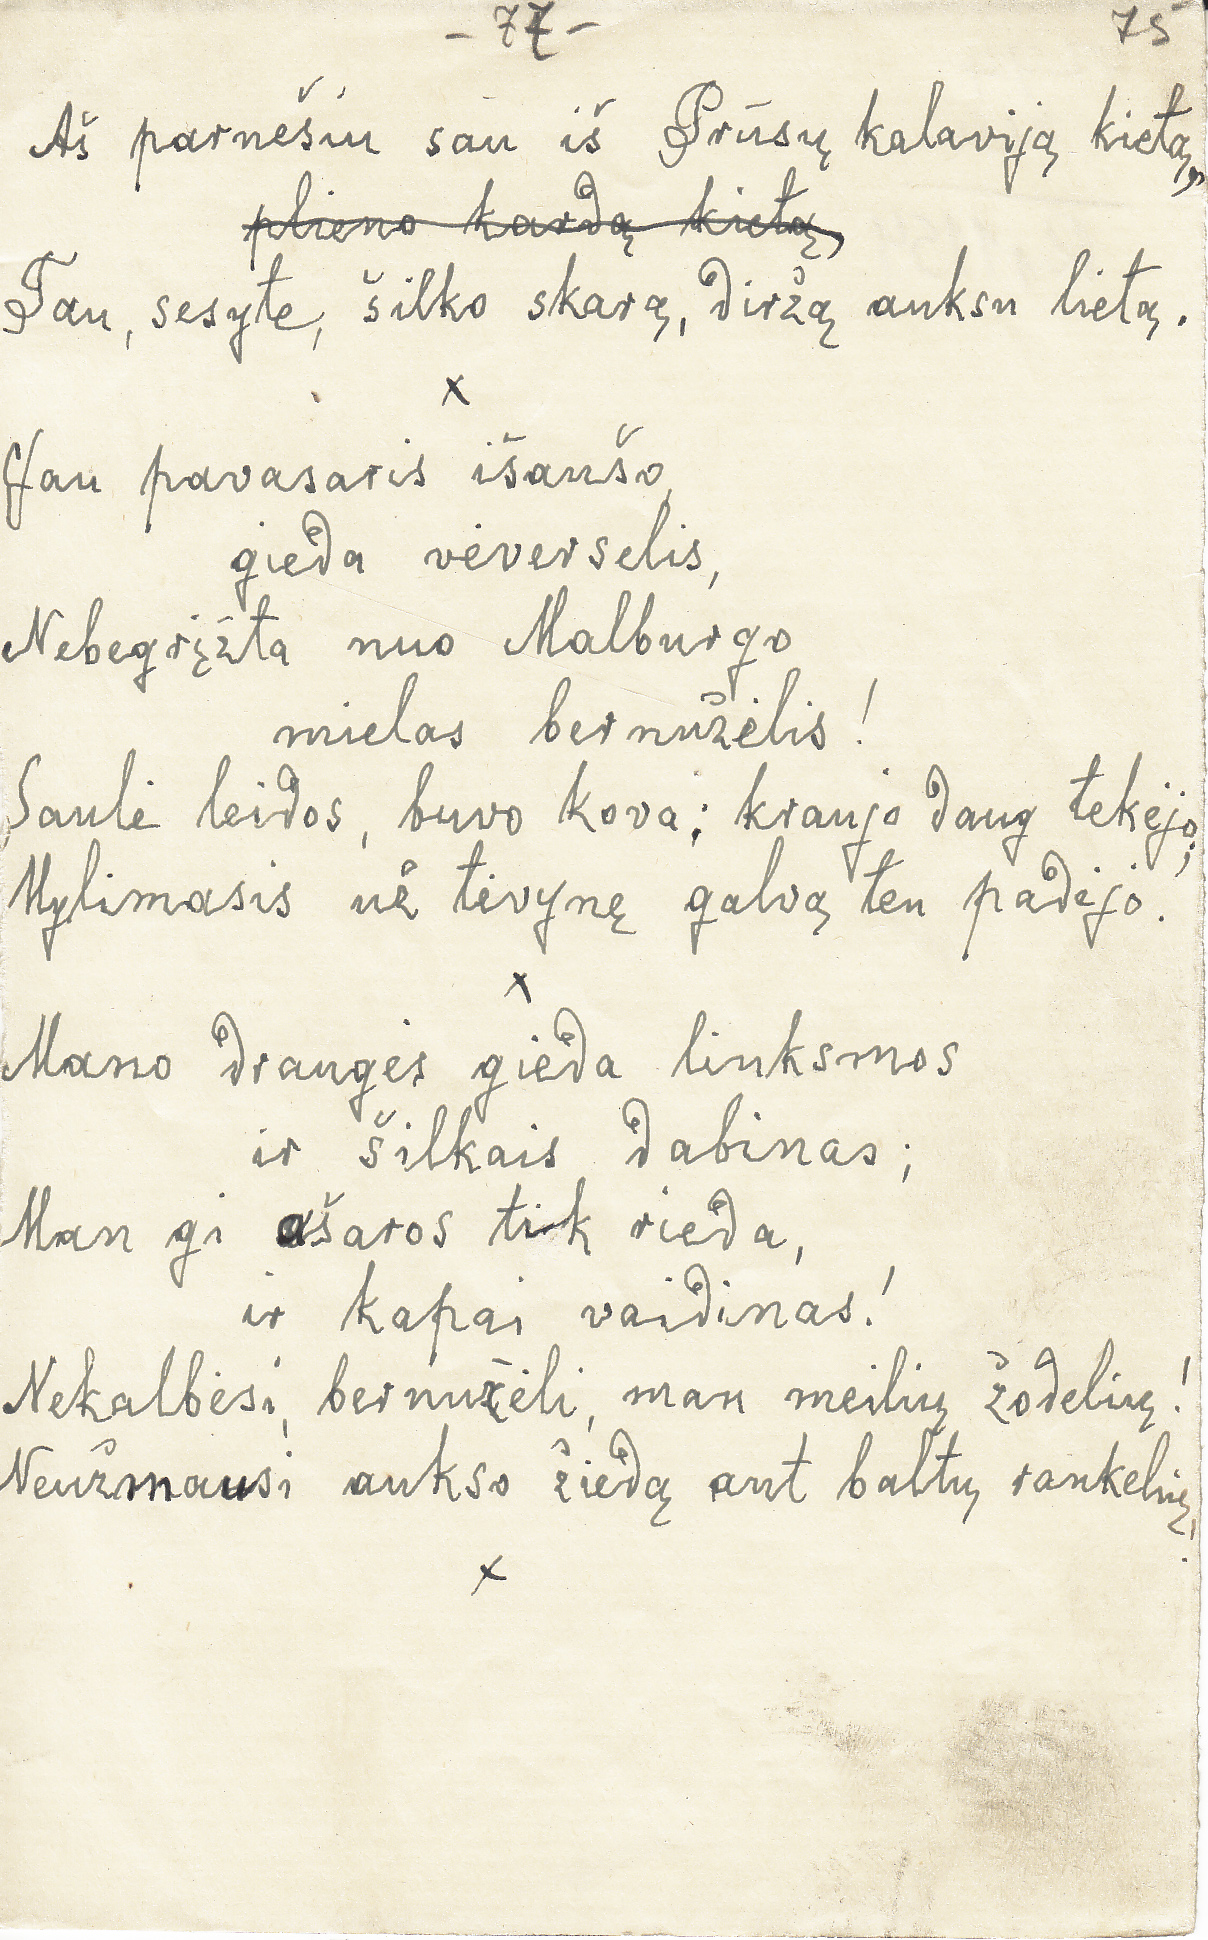 - 77 -
75
Aš parnešiu sau iš Prūsų kalaviją kietą,
plieno kardą kietą,
Tau, sesyte, šilko skarą, diržą auksu lietą.
x
Jau pavasaris išaušo,
gieda vėverselis,
Nebegrįžta nuo Malburgo
mielas bernužėlis!
Saulė leidos, buvo kova; kraujo daug tekėjo;
Mylimasis už tėvynę galvą ten padėjo.
x
Mano draugės gieda linksmos
ir šilkais dabinas;
Man gi ašaros tik rieda,
ir kapai vaidinas!
Nekalbėsi, bernužėli, man meilių žodelių!
Neužmausi aukso žiedą ant baltų rankelių!
x